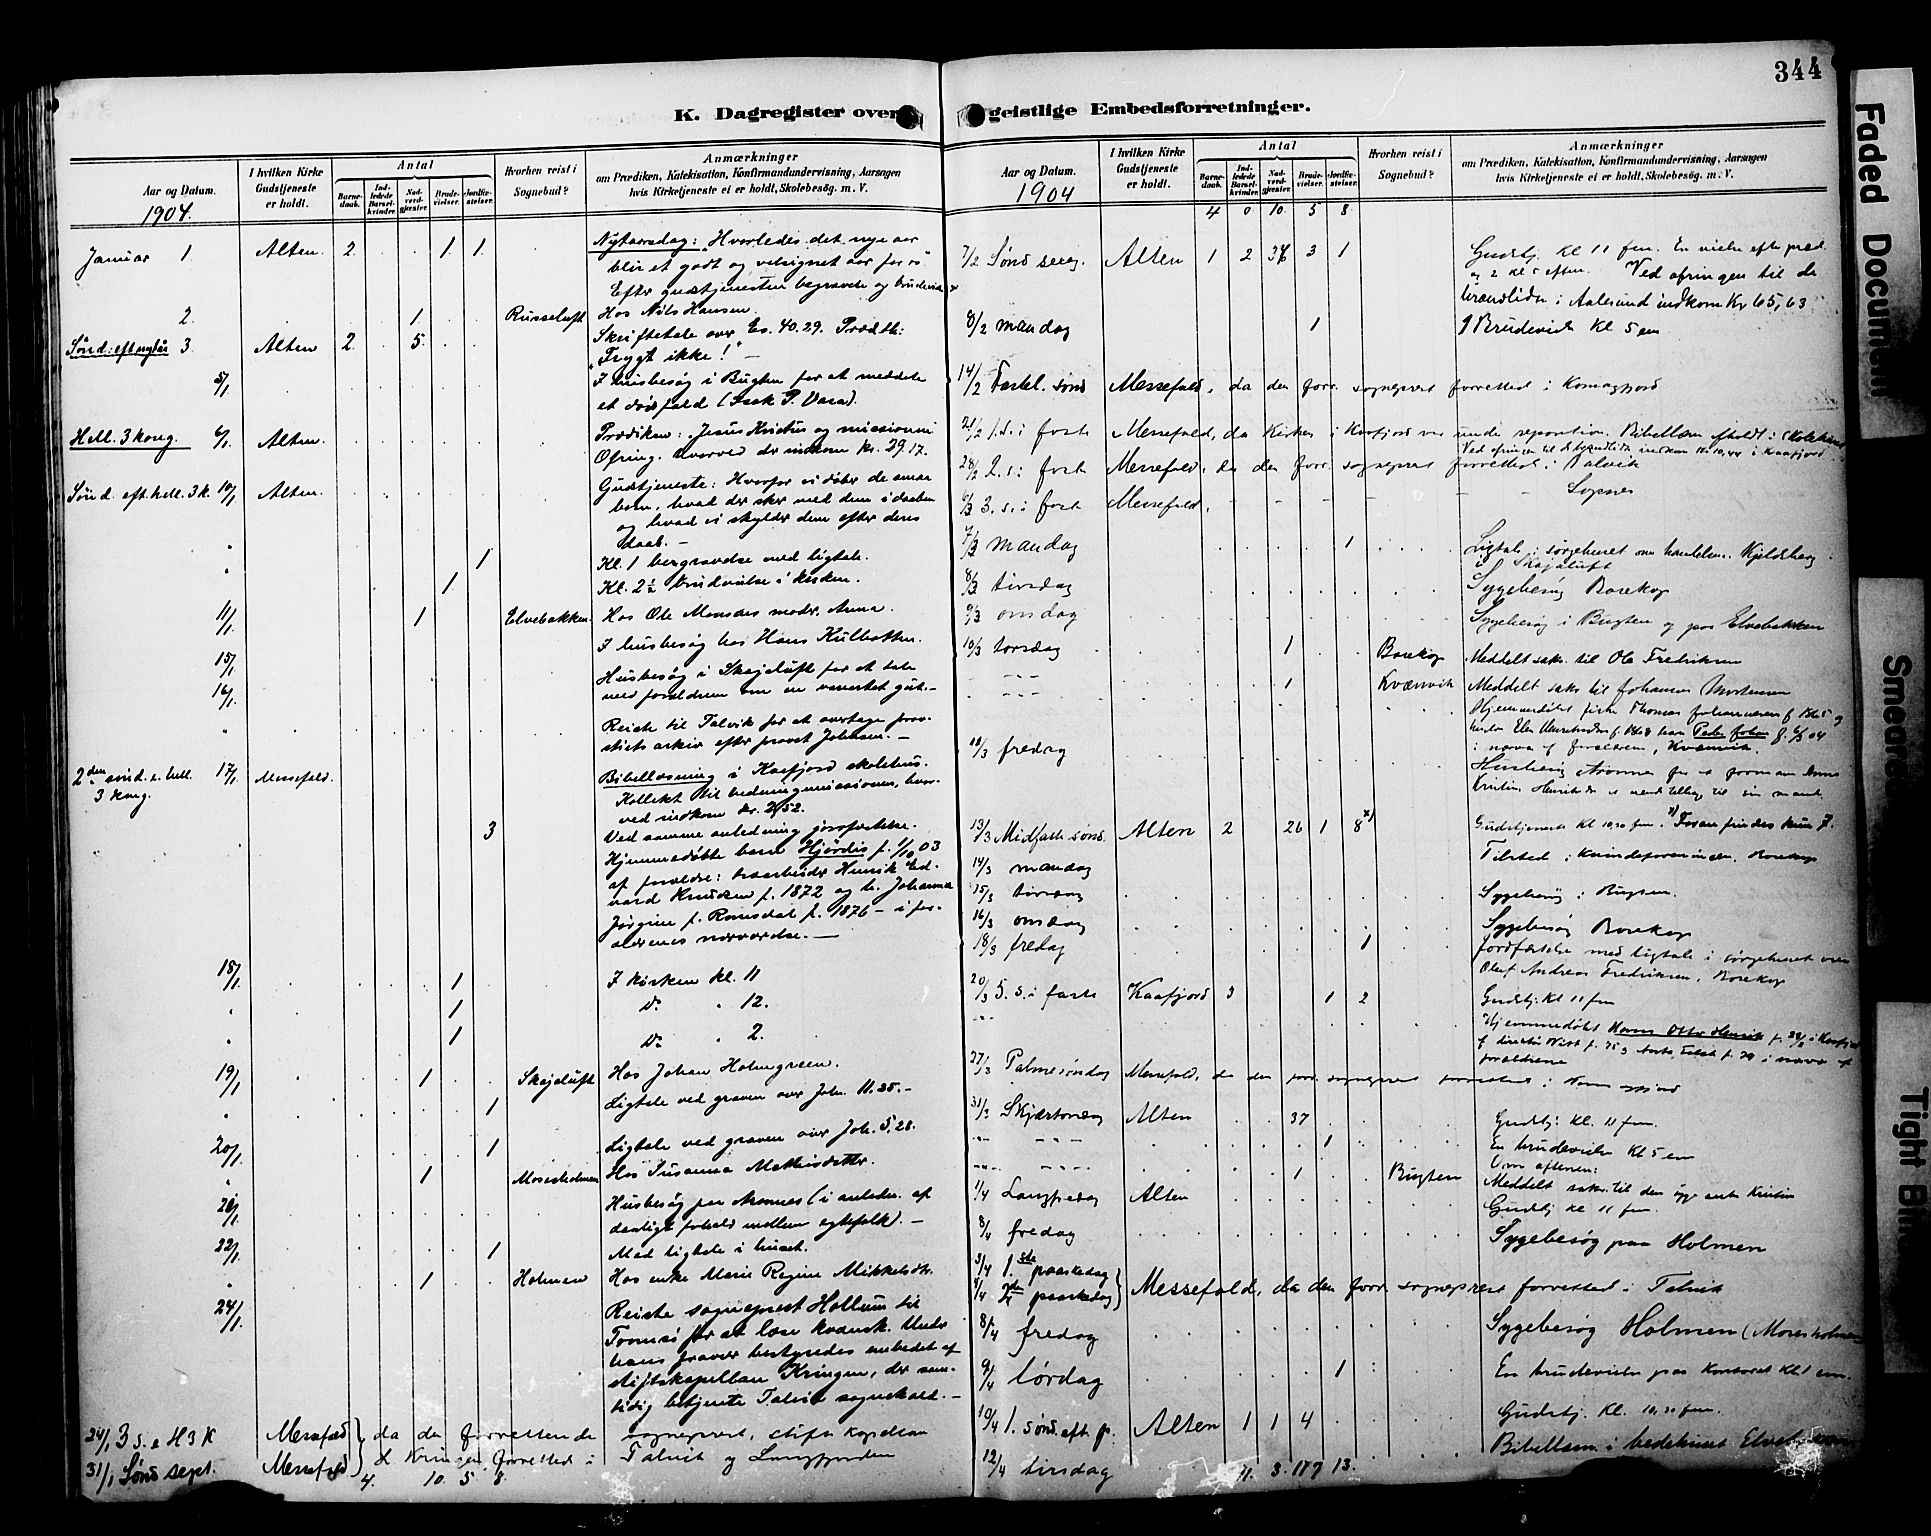 344
K. Dagregister over geistlige Embedsforretninger.
Aar og Datum.
1904.
I hvilken Kirke Gudstjeneste er holdt.
Antal
Barnedaab.
Indledede Barselkvinder.
Nadverdgjester.
Brudevielser.
Jordfæstelser.
Hvorhen reist i Sognebud?
Anmærkninger
om Prædiken, Katekisation, Konfirmandundervisning, Aarsagen
hvis Kirketjeneste ei er holdt, Skolebesøg. m. V.
Januar 1 Alten. 2 1 1 Nytaarsdag: "Hvorledes det nye aar
blir et godt og velsignet aar for os".
Efter gudstjenesten begravelse og brudevielse
2. 1 Russeluft Hos Nils Hansen.
Sønd: eft nytår 3 Alten 2. 5. Skriftetale over Es. 40.29. Prædth:
"Frygt ikke!" —
5/1 I husbesøg i Bugten for at meddele
et dødsfald (Isak P. Vara).
Hell. 3 kong. 6/1 Alten. Prædiken: Jesus Kristus og missionen
Ofring, hvorved der indkom kr. 29.17.
Sønd. eft. hell. 3 k. 10/1 Alten. Gudstjeneste: Hvorfor vi døber de smaa
børn, hvad der sker med dem i daaben
og hvad vi skylder dem efter deres
daab. —
1 Kl. 1 bergravelse med ligtale.
1 Kl. 2 ½ brudvielse i kirken.
11/1 1 Elvebakken Hos Ole Monsdes moder, Anna.
I husbesøg hos Hans Kulbotten.
15/1 Husbesøg i Skajaluft for at tale
16/1 med forældrene om en vanartet gut. —
Reiste til Talvik for at overtage prov-
stiets arkiv efter provst Johnsen. —
2den sønd. e. hell. 3 kong. 17/1 Messefald. Bibellæsning i Kaafjord skolehus.
Kollekt til hedningmissionen, hvor-
ved indkom kr. 2,52.
3 Ved samme anledning jordfæstelse.
Hjemmedøbte barn Hjørdis f. 1/10 03
af forældre: Henrik Ed-
vard Knudsen f. 1872 og h. Johanna
Jørgine f. Romsdal f. 1876 – i for-
ældrenes nærværelse. —
18/1 1 I kirken kl. 11
1 Do " 12.
1 Do " 2.
19/1 1 Skajaluft Hos Johan Holmgreen.
1 Ligtale ved graven over Joh. 11.25. —
20/1 1 Ligtale ved graven over Joh. 5,28.
1 Mosesholmen Hos Susanna Mathisdtr.
Husbesøg paa Aronnes (i anledn. af
daarligt forhold mellem egtefolk). —
22/1 1 Med ligtale i huset.
1 Holmen Hos enke Marie Regine Mikkelsdtr.
24/1 Reiste sogneprest Hollum til
Tromsø for at læse kvænsk. Under
hans fravær bestyredes embedet af
stiftskapellan Kringen, der sam-
tidig betjente Talvik sognekald. —
24/1 3 s. e H 3 K Messefald } da den forrettende sogneprest, stiftskapellan
31/1 Sønd sept. Messefald } L Kringen, forretted i Talvik og Langfjorden
4. 10. 5 8.
Aar og Datum.
1904
I hvilken Kirke Gudstjeneste er holdt.
Antal
Barnedaab.
Indledede Barselkvinder.
Nadverdgjester.
Brudevielser.
Jordfæstelser.
Hvorhen reist i Sognebud?
Anmærkninger
om Prædiken, Katekisation, Konfirmandundervisning, Aarsagen
hvis Kirketjeneste ei er holdt, Skolebesøg, m. V.
4 0 10 5 8
7/2 Sønd sexag. Alten 1 2 36 3 1 Gudstj. Kl 11 fm. En vielse efte præd.
og 2 kl 5 eften. Ved ofringen til de
brændlidte i Aalesund indkom Kr 65,63
8/2 mandag 1 1 Brudeviels Kl 5 em
14/2 Fastel. sønd Messefald, da den forr. sogneprest forretted i Komagfjord
21/2 1. s. i faste Messefald, da Kirken i Kaafjord var under reparation. Bibellæsn afholdt i Skolehuset
Ved ofringen til de brændlidte indkom Kr 10,44 i Kaafjord
28/2 2. s. i faste Messefald, da den forr. sogneprest forretted i Talvik
6/3 3. s. i faste Messefald. – – – – – – Sopnes
7/3 mandag 1 Ligtale i sørgehuset om Kjeldsberg
i Skajaluft
8/3 tirsdag Sygebesøg Bosekop
9/3 onsdag Sygebesøg i Bugten og paa Elvebakken
10/3 torsdag 1 Bosekop Meddelt sakr. til Ole Fredriksen
1 Kvænvik Meddelt sakr til Johannes Mortensen
Hjemmedøbt fisker Thomas Johannesen f 1865 og
Peder Johan f. 6/3 04
i nærv af forældrene, Kvænvik.
11/3 fredag Husbesøg Aronnes for at formane Anna
Kristine Henriksdtr at vende tilbage til sin mand.
13/3 Midfaste sønd. Alten 2 26 1 8 x) Gudstjeneste Kl 10,30 fm. x) Foran findes kun 7.
14/3 mandag Tilsted i Kvindeforeningen, Bosekop
15/3 tirsdag Sygebesøg i Bugten.
16/3 onsdag Sygebesøg Bosekop
18/3 fredag 1 Jordfæstelse med ligtale i sørgehuset over
Oluf Andreas Fredriksen, Bosekop
20/3 5. s. i faste Kaafjord 3 1 2 Gudstj. Kl 11 fm
Hjemmedøbt Hans Otto Henrik i Kaafjord
forældrene
27/3 Palmesøndag Messefald, da den forr. sogneprest forretted i Komagfjord
31/3 Skjærtorsdag Alten 37 Gudstj. Kl. 11 fm.
1 En brudevielse Kl 5 em
1 Bugten Om aftenen:
Meddelt sakr. til den syge enke Kristine
1/4 Langfredag Alten Gudstj Kl 11 fm.
8/4 fredag Sygebesøg paa Holmen
3/4 1.ste paaskedag } Messefald, da den forr. sogneprest forretted i Talvik
4/4 2den paaskedag }
8/4 fredag Sygebesøg Holmen (Mosesholmen
9/4 lørdag 1 En brudevielse paa Kontoret Kl 1 em.
10/4 1. sønd. eft p. Alten 1 1 4 Gudstj. Kl. 10,30 fm.
12/4 tirsdag Bibellæsn i bedehuset Elvebakken
11. 3. 117 13.
Faded Document
Smeared
Tight Bin